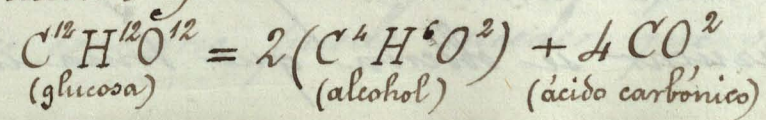 C¹²H¹²O¹² = 2(C⁴H⁶O²) + 4 CO,²
(glucosa) (alcohol) (ácido carbónico)